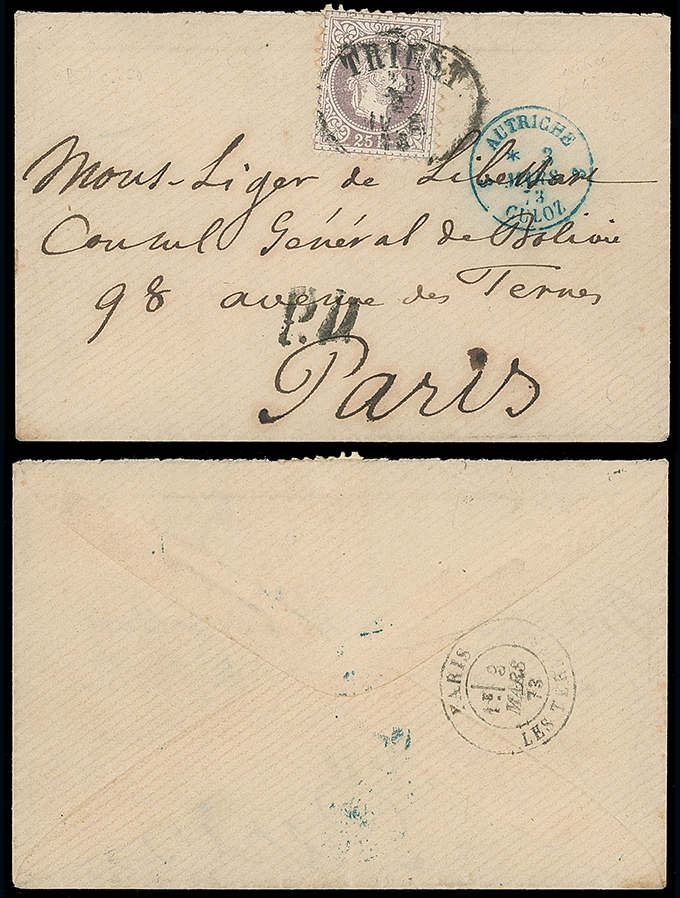 TRIEST
28
25
AUTRICHE
* 2
MARS
73
CULOZ
Mons. Liger de Libessart
Consul Général de Bolivie
98 avenue des Ternes
P.D.
Paris
PARIS
1E 3
MARS
73
LES TER